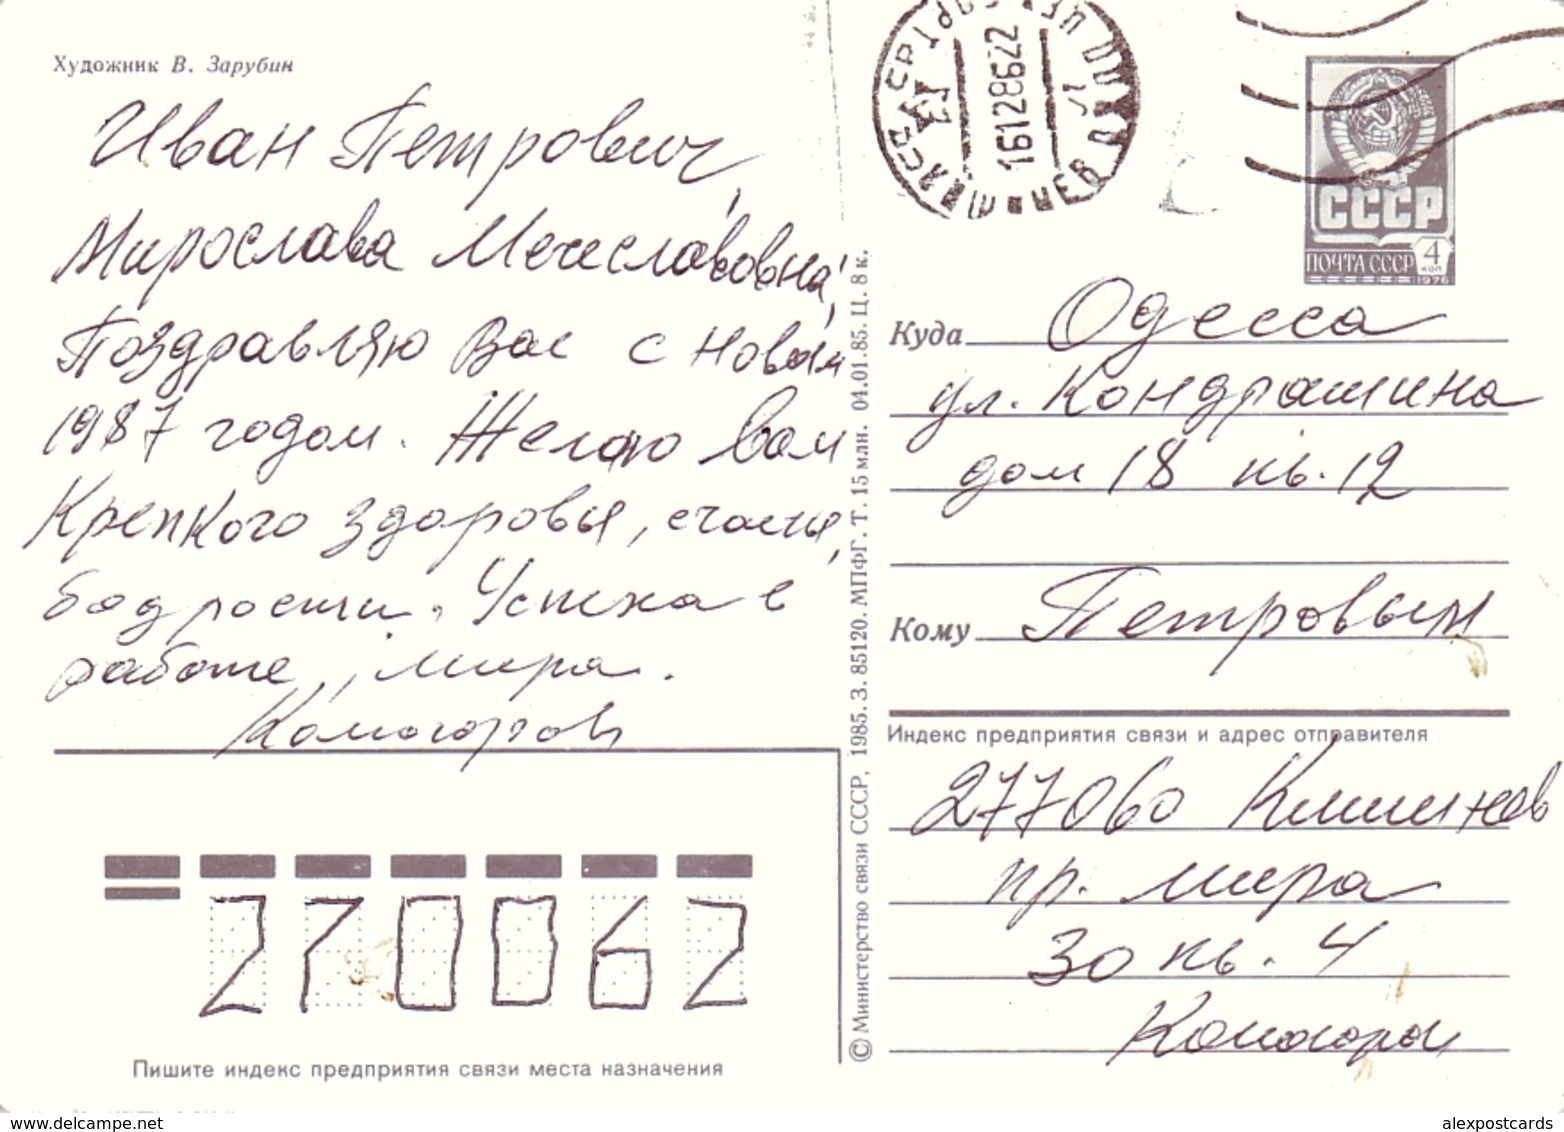 Художник В. Зарубин
Иван Петрович,
Мирослава Мечеславовна,
Поздравляю Вас с новым
1987 годом. Желаю вам
Крепкого здоровья, счастья,
бодрости. Успеха в
работе, мира.
16128622
СССР
ПОЧТА СССР 4 коп
1976
Куда Одесса
ул. Кондрашина
дом 18 кв. 12
Кому Петровым
Индекс предприятия связи и адрес отправителя
277060 Кишинев
пр. мира
30 кв. 4
270062
Пишите индекс предприятия связи места назначения
© Министерство связи СССР, 1985. З. 85120. МПФГ. Т. 15 млн. 04.01.85. Ц. 8 к.
www.delcampe.net
alexpostcards